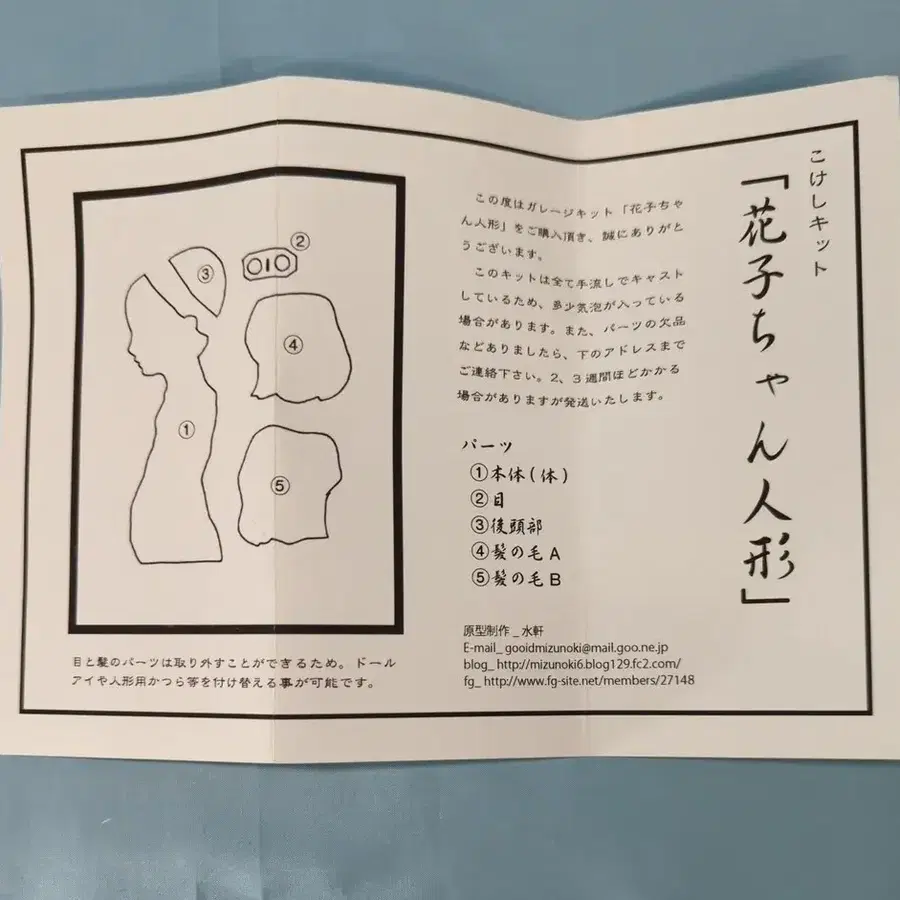 こけしキット
「花子ちゃん人形」
この度はガレージキット「花子ちゃ
ん人形」をご購入頂き、誠にありがと
うございます。
このキットは全て手流しでキャスト
しているため、多少気泡が入っている
場合があります。また、パーツの欠品
などありましたら、下のアドレスまで
ご連絡下さい。2、3週間ほどかかる
場合がありますが発送いたします。
パーツ
①本体(体)
②目
③後頭部
④髪の毛A
⑤髪の毛B
原型制作_水軒
E-mail_gooidmizunoki@mail.goo.ne.jp
blog_http://mizunoki6.blog129.fc2.com/
fg_http://www.fg-site.net/members/27148
③
②
④
①
⑤
目と髪のパーツは取り外すことができるため。ドール
アイや人形用かつら等を付け替える事が可能です。